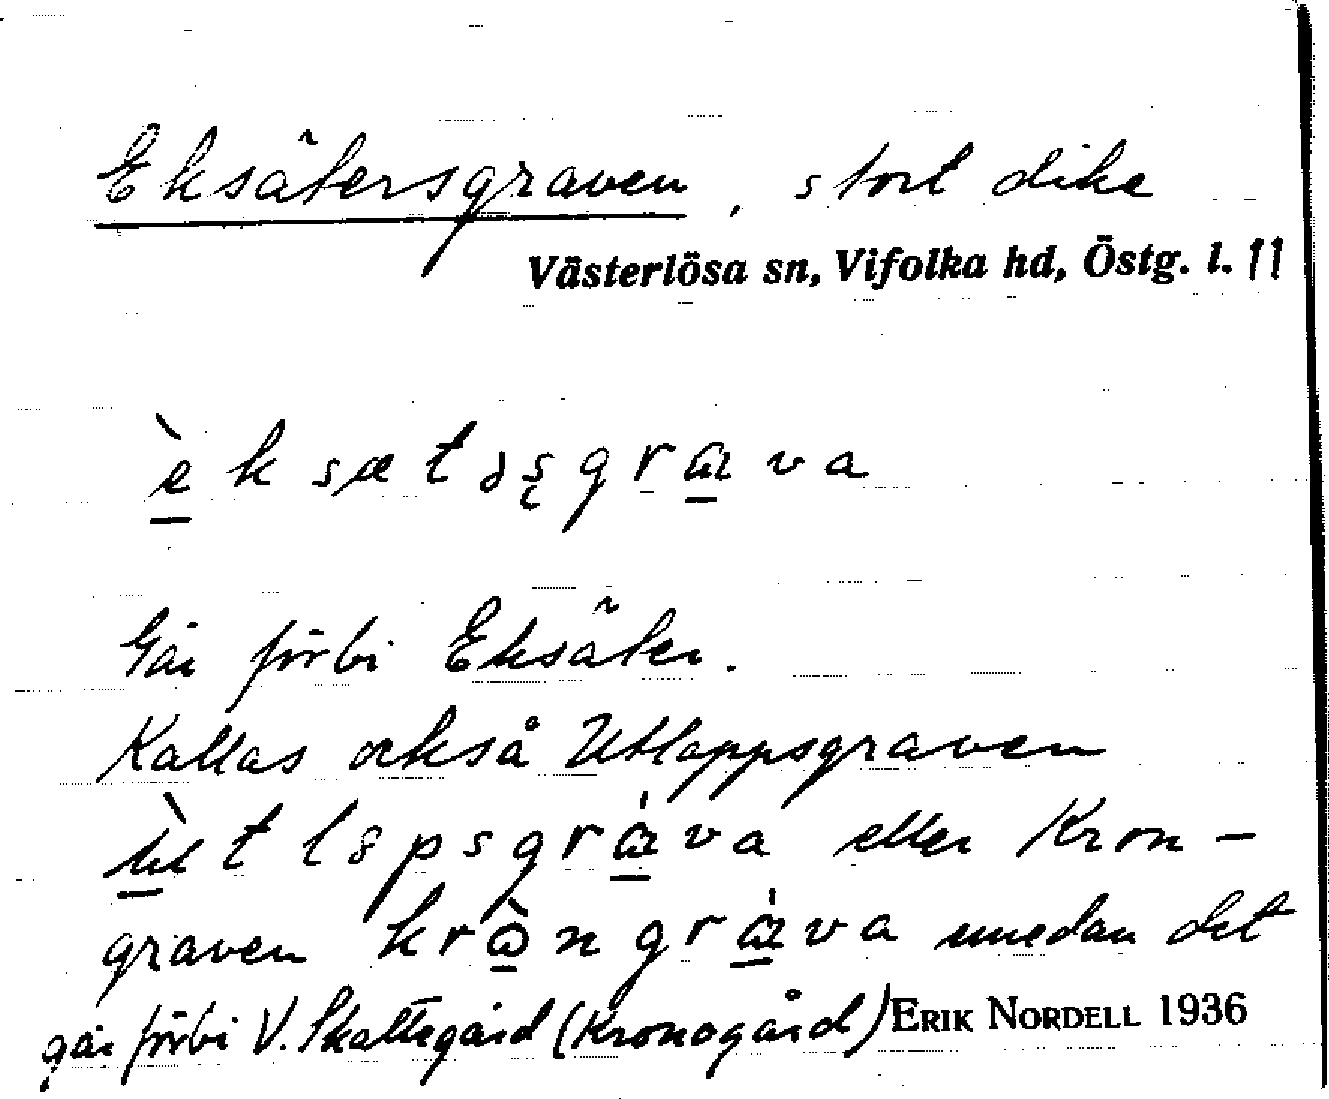 Eksätersgraven, stort dike
Västerlösa sn, Vifolka hd, Östg. l. 11
èksætəşgrɑva
Går förbi Eksäter.
Kallas också Utloppsgraven
ùtlɵpsgrɑ̀va eller Kron-
graven kròngrɑ̀va emedan det
går förbi V. Skattegård (Kronogård) ERIK NORDELL 1936